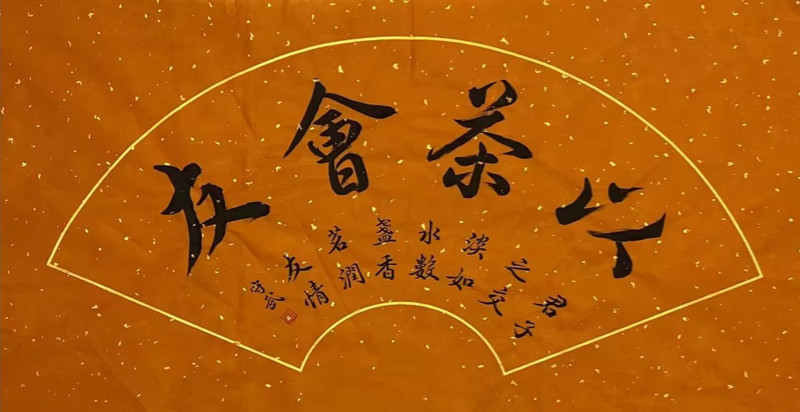 以茶會友
君子
之交
淡如
水數
盞香
茗潤
友情